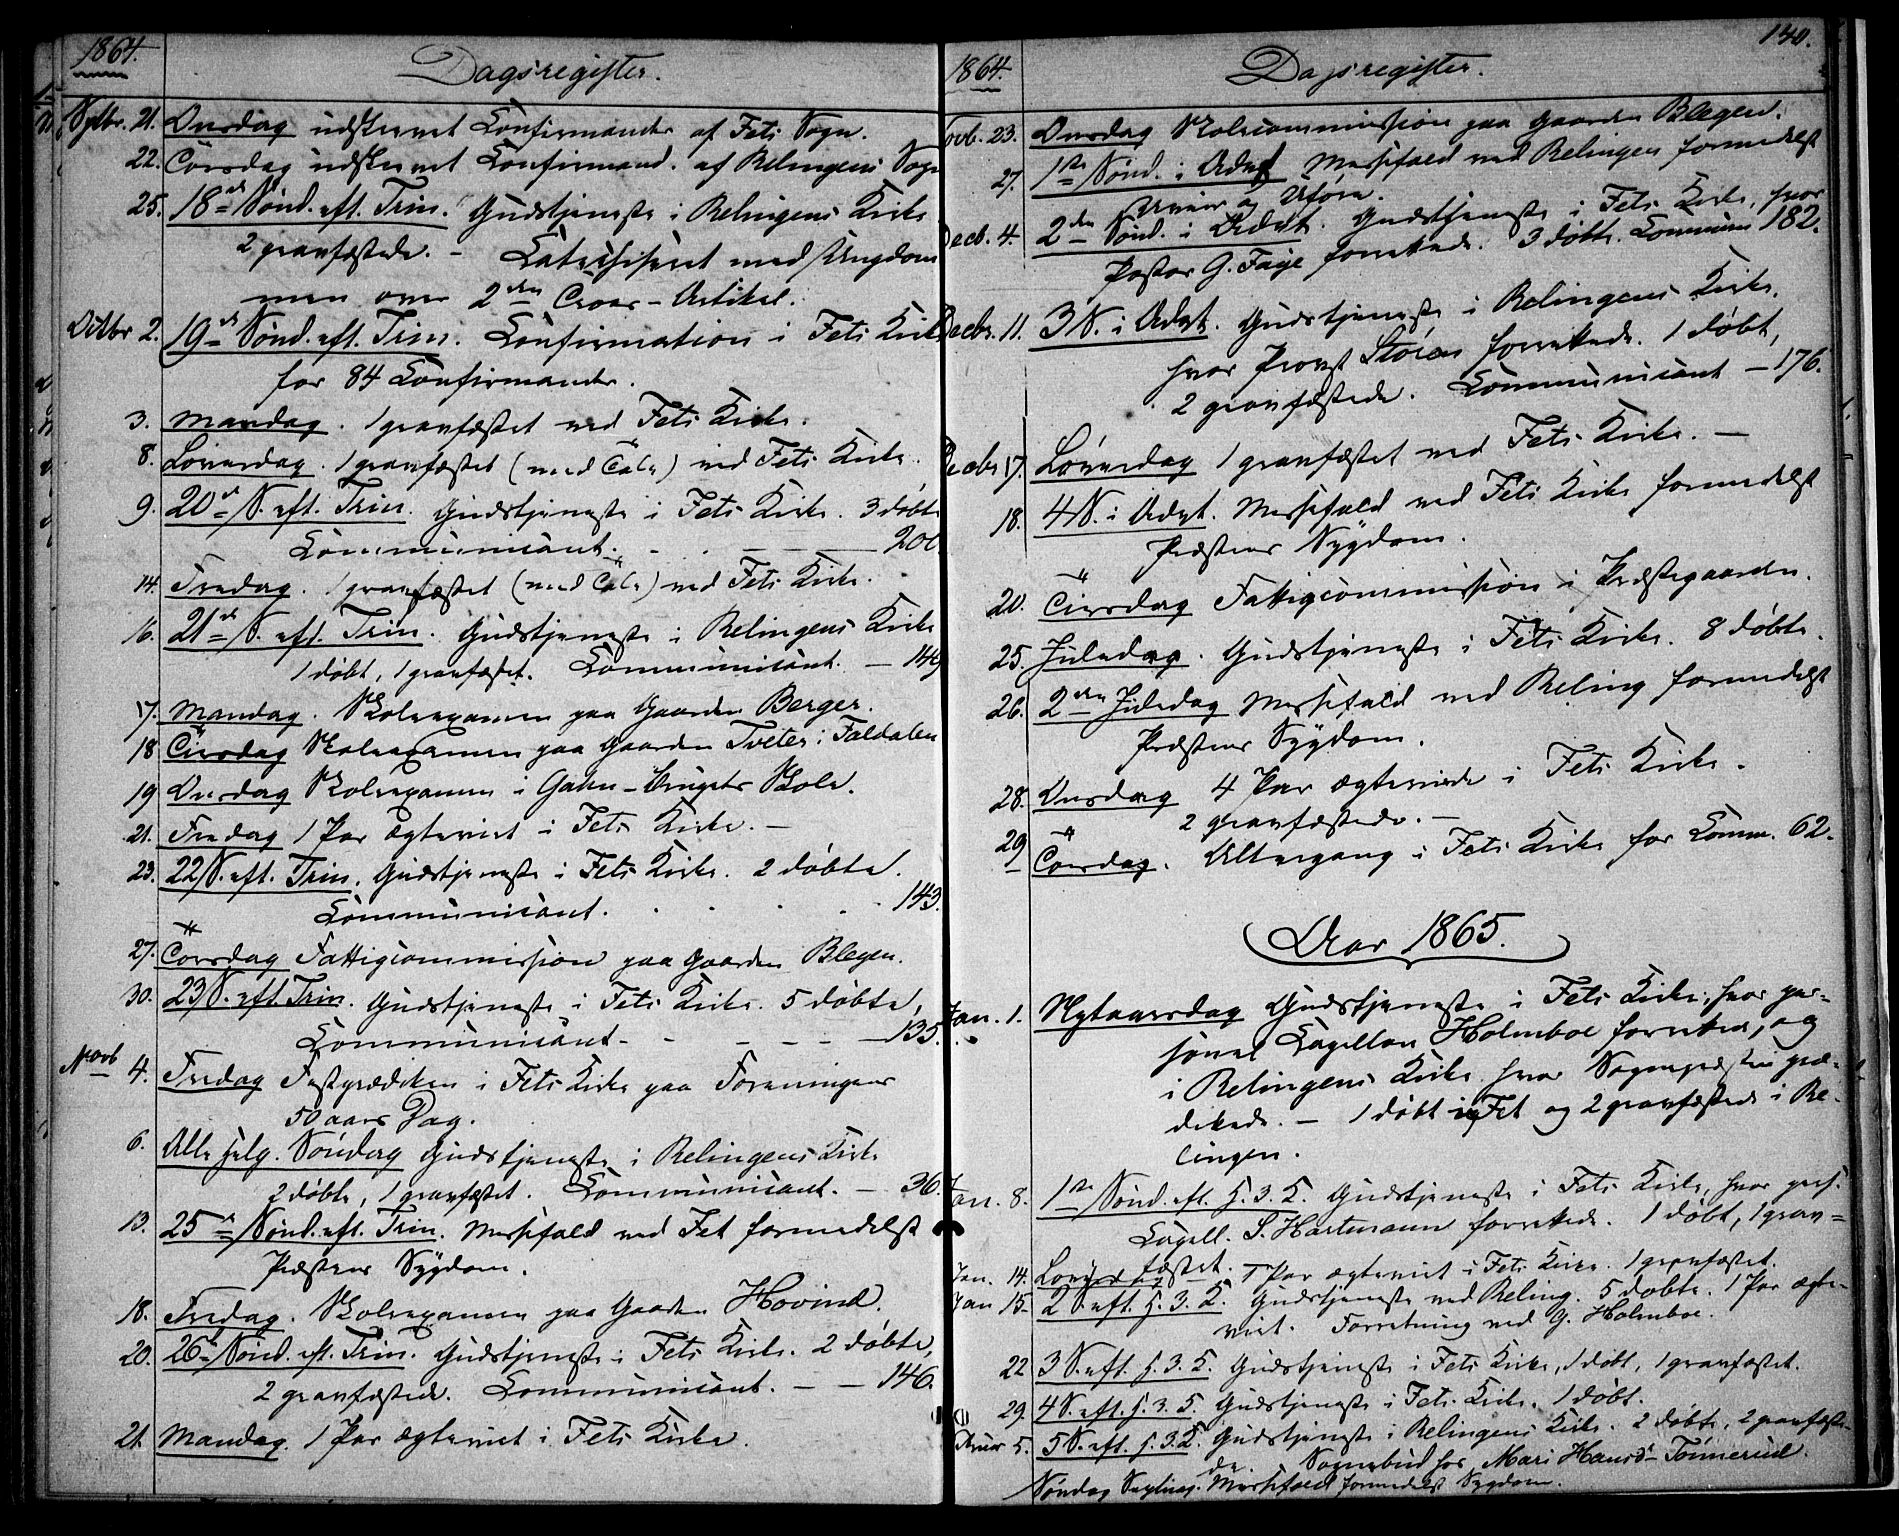 1864.
Dagsregister.
Septbr. 21. Onsdag udskrevet Confirmander af Fets Sogn.
22. Torsdag udskrevet Confirmand. af Relingens Sogn
25. 18de Sønd. eft. Trin. Gudstjeneste i Relingens Kirke
2 gravfæstede. – Catechiseret med Ungdom
men over 2den Troes-Artikel.
Octbr 2. 19de Sønd. eft. Trin. Confirmation i Fets Kirke
for 84 Confirmander.
3. Mandag. 1 gravfæstet ved Fets Kirke.
8. Løverdag. 1 gravfæstet (med Tale) ved Fets Kirke.
9. 20de S. eft. Trin. Gudstjeneste i Fets Kirke. 3 døbte
Communicant. – – 200
14. Fredag. 1 gravfæstet (med Tale) ved Fets Kirke.
16. 21de S. eft. Trin. Gudstjeneste i Relingens Kirke
1 døbt, 1 gravfæstet. Communicant. – 149
17. Mandag. Skoleexamen paa Gaarden Berger.
18 Tirsdag Skoleexamen paa Gaarden Tveter i Faldalen
19 Onsdag Skoleexamen i Gahn-Brugets Skole.
21. Fredag 1 Par ægteviet i Fets Kirke. –
23. 22 S. eft. Trin. Gudstjeneste i Fets Kirke. 2 døbte.
Communicant. . . . 143.
27. Torsdag Fattigcommission paa Gaarden Blegen.
30. 23 S. eft. Trin. Gudstjeneste i Fets Kirke. 5 døbte,
Communicant. – – – – 135.
Novb 4. Fredag Festprædiken i Fets Kirke paa Foreningens
50 aars Dag.
6. Alle Helg. Søndag Gudstjeneste i Relingens Kirke
2 døbte, 1 gravfæstet. Communicant. – 36.
13. 25de Sønd. eft. Trin. Messefald ved Fet formedelst
Præstens Sygdom.
18. Fredag. Skoleexamen paa Gaarden Hovind.
20. 26de Sønd. eft. Trin. Gudstjeneste i Fets Kirke. 2 døbte,
2 gravfæstede. Communicant. – – 146.
21. Mandag. 1 Par ægteviet i Fets Kirke.
140.
1864.
Dagsregister.
Novb. 23. Onsdag Skolecommission paa Gaarden Blegen.
27. 1ste Sønd. i Advt Messefald ved Relingen formedelst
Uveir og Uføre.
Decb. 4. 2den Sønd. i Advt. Gudstjeneste i Fets Kirke, hvor
Pastor G. Faye forrettede. 3 døbte. Communic 182.
Decbr. 11. 3 S. i Advt. Gudstjeneste i Relingens Kirke,
hvor Provst Støren forrettede. 1 døbt,
2 gravfæstede. Communicant – 176.
Decbr 17. Løverdag 1 gravfæstet ved Fets Kirke. –
18. 4 S. i Advt. Messefald ved Fets Kirke formedelst
Præstens Sygdom.
20. Tirsdag Fattigcommission i Præstegaarden.
25. Juledag. Gudstjeneste i Fets Kirke. 8 døbte.
26. 2den Juledag Messefald ved Reling formedelst
Præstens Sygdom.
28. Onsdag 4 Par ægteviede i Fets Kirke.
2 gravfæstede. –
29 Torsdag. Altergang i Fets Kirke for Comm. 62.
Aar 1865.
Jan. 1. Nytaarsdag Gudstjeneste i Fets Kirke, hvor per-
sonel Capellan Holmboe forrettede, og
i Relingens Kirke hvor Sognepræsten præ-
dikede. – 1 døbt i Fet og 2 gravfæstede i Re-
lingen.
Jan. 8. 1ste Sønd. eft. H. 3. K. Gudstjeneste i Fets Kirke, hvor pers.
Capell. S. Hartmann forrettede. 1 døbt, 1 grav-
fæstet.
Jan. 14. Løverdag 1 Par ægteviet i Fets Kirke. 1 gravfæstet.
Jan 15. 2 S. eft. H. 3. K. Gudstjeneste ved Reling. 5 døbte. 1 Par ægte-
viet. Forretning ved P. Holmboe.
22 3 S. eft. H. 3. K. Gudstjeneste i Fets Kirke, 1 døbt, 1 gravfæstet.
29. 4 S. eft. H. 3. K. Gudstjeneste i Fets Kirke. 1 døbt.
Februar 5. 5 S. eft. H. 3. K. Gudstjeneste i Relingens Kirke. 2 døbte, 2 gravfæste-
de. Sognebud hos Mari Hansd. Tønnerud.
Søndag Septuag. Messefald formedelst Sygdom.